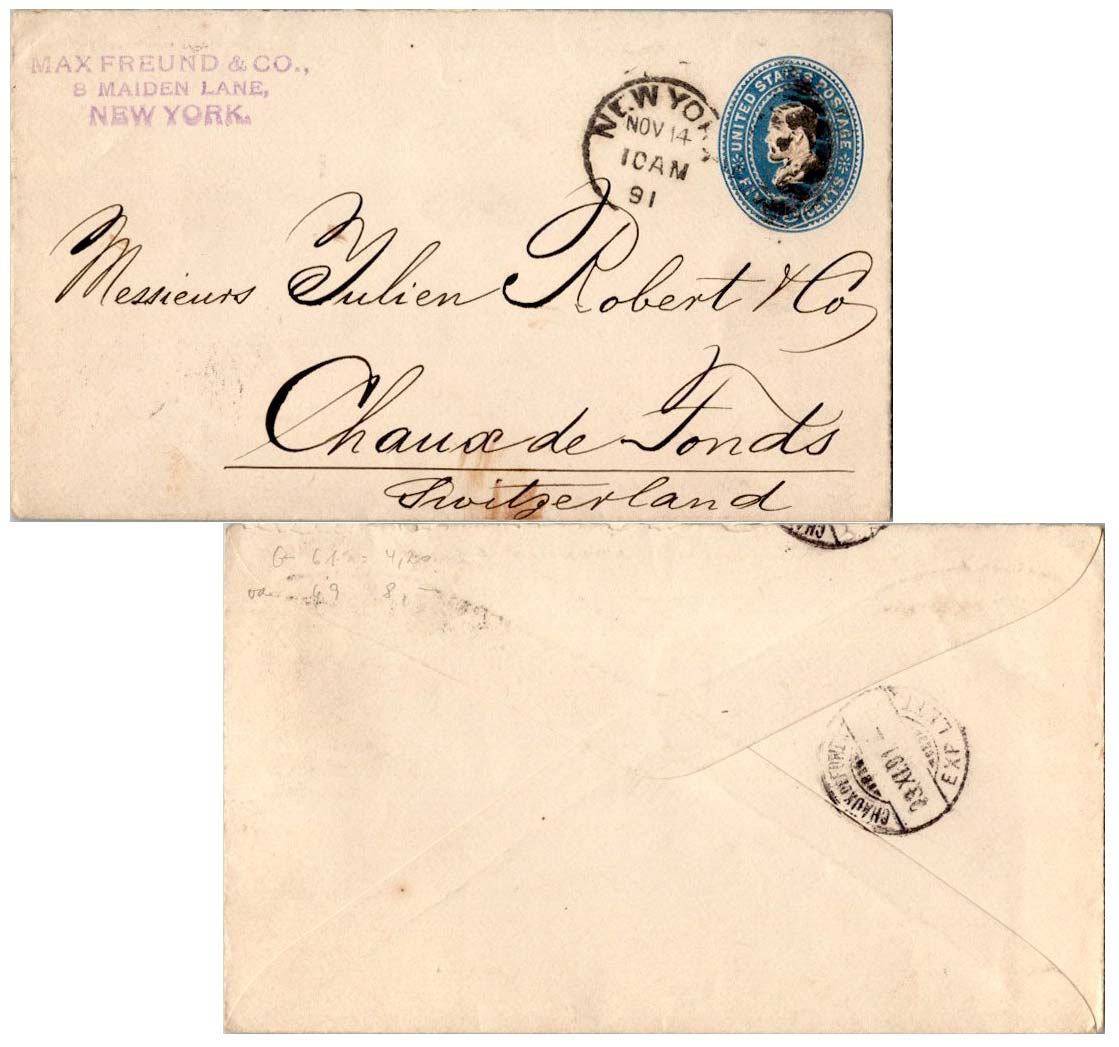 MAX FREUND & CO.,
8 MAIDEN LANE,
NEW YORK.
NEW YORK
NOV 14
10 AM
91
UNITED STATES POSTAGE
FIVE CENTS
Messieurs Julien Robert & Co
Chaux de Fonds
Switzerland
CHA
4,20
69 8,-
EXP. LETT
23.XI.91
CHAUX DE FONDS